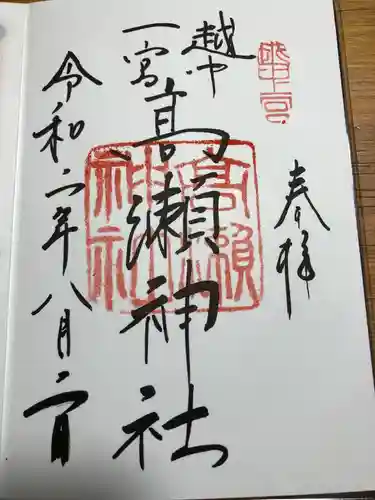 奉拝
越中
一宮
高瀬神社
高瀬神社
令和二年八月二日